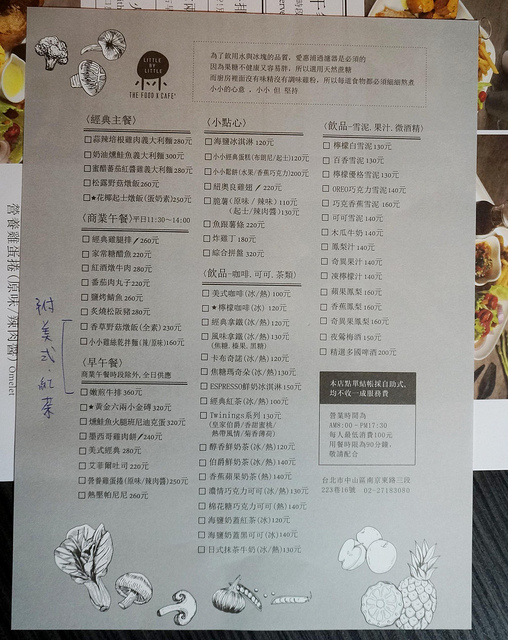 LITTLE
BY
LITTLE
THE FOOD X CAFE
為了飲用水與冰塊的品質，愛惠浦過濾器是必須的
因為果糖不健康又容易胖，所以選用天然蔗糖
而廚房裡面沒有味精沒有調味雞粉，所以每道食物都必須細細熬煮
小小的心意，小小但 堅持
〈經典主餐〉
蒜辣培根雞肉義大利麵 280元
奶油燻鮭魚義大利麵 300元
蜜醋蕃茄紅醬雞義大利麵 280元
松露野菇燉飯 260元
★花椰起士燉飯(蛋奶素) 250元
〈商業午餐〉平日11:30~14:00
經典雞腿排 260元
家常糖醋魚 220元
紅酒燉牛肉 280元
番茄肉丸子 220元
鹽烤鯖魚 260元
炙燒松阪豬 280元
香草野菇燉飯(全素) 230元
小小雞絲乾拌麵(辣/原味) 160元
附美式.紅茶
〈早午餐〉
商業午餐時段除外,全日供應
嫩煎牛排 360元
★黃金六兩小金磚 320元
燻鮭魚火腿班尼迪克蛋 320元
墨西哥雞肉餅 240元
美式經典 280元
艾菲爾吐司 220元
營養雞蛋捲(原味/辣肉醬) 250元
熱壓帕尼尼 260元
〈小點心〉
海鹽冰淇淋 120元
小小經典蛋糕(布朗尼/起士) 120元
小小鬆餅(水果/香蕉巧克力) 200元
紐奧良雞翅 220元
脆薯(原味/辣味) 110元
(起士/辣肉醬) 130元
魚跟薯條 220元
炸雞丁 180元
綜合拼盤 320元
〈飲品-咖啡.可可.茶類〉
美式咖啡(冰/熱) 100元
★檸檬咖啡(冰) 120元
經典拿鐵(冰/熱) 120元
風味拿鐵(冰/熱) 130元
(焦糖,榛果,黑糖)
卡布奇諾(冰/熱) 120元
焦糖瑪奇朵(冰/熱) 130元
ESPRESSO鮮奶冰淇淋 150元
經典紅茶(冰/熱) 100元
Twinings系列 130元
(皇家伯爵/香甜蜜桃/
熱帶風情/菊香薄荷)
醇香鮮奶茶(冰/熱) 120元
伯爵鮮奶茶(冰/熱) 140元
香蕉蘋果奶茶(熱) 150元
濃情巧克力可可(冰/熱) 130元
棉花糖巧克力可可(熱) 140元
海鹽奶蓋紅茶(冰) 120元
海鹽奶蓋黑可可(冰) 140元
日式抹茶牛奶(冰/熱) 130元
〈飲品-雪泥.果汁.微酒精〉
檸檬白雪泥 130元
百香雪泥 130元
檸檬優格雪泥 130元
OREO巧克力雪泥 140元
巧克香蕉雪泥 160元
可可雪泥 140元
木瓜牛奶 140元
鳳梨汁 140元
奇異果汁 140元
凍檸檬汁 140元
蘋果鳳梨 160元
香蕉鳳梨 160元
奇異果鳳梨 160元
夜貓梅酒 150元
精選多國啤酒 200元
本店點單結帳採自助式,
均不收一成服務費
營業時間為
AM8:00~PM17:30
每人最低消費100元
用餐時間為90分鐘,
敬請配合
台北市中山區南京東路三段
223巷16號 02-27183080
營養雞蛋捲(原味/辣肉醬) Omelet